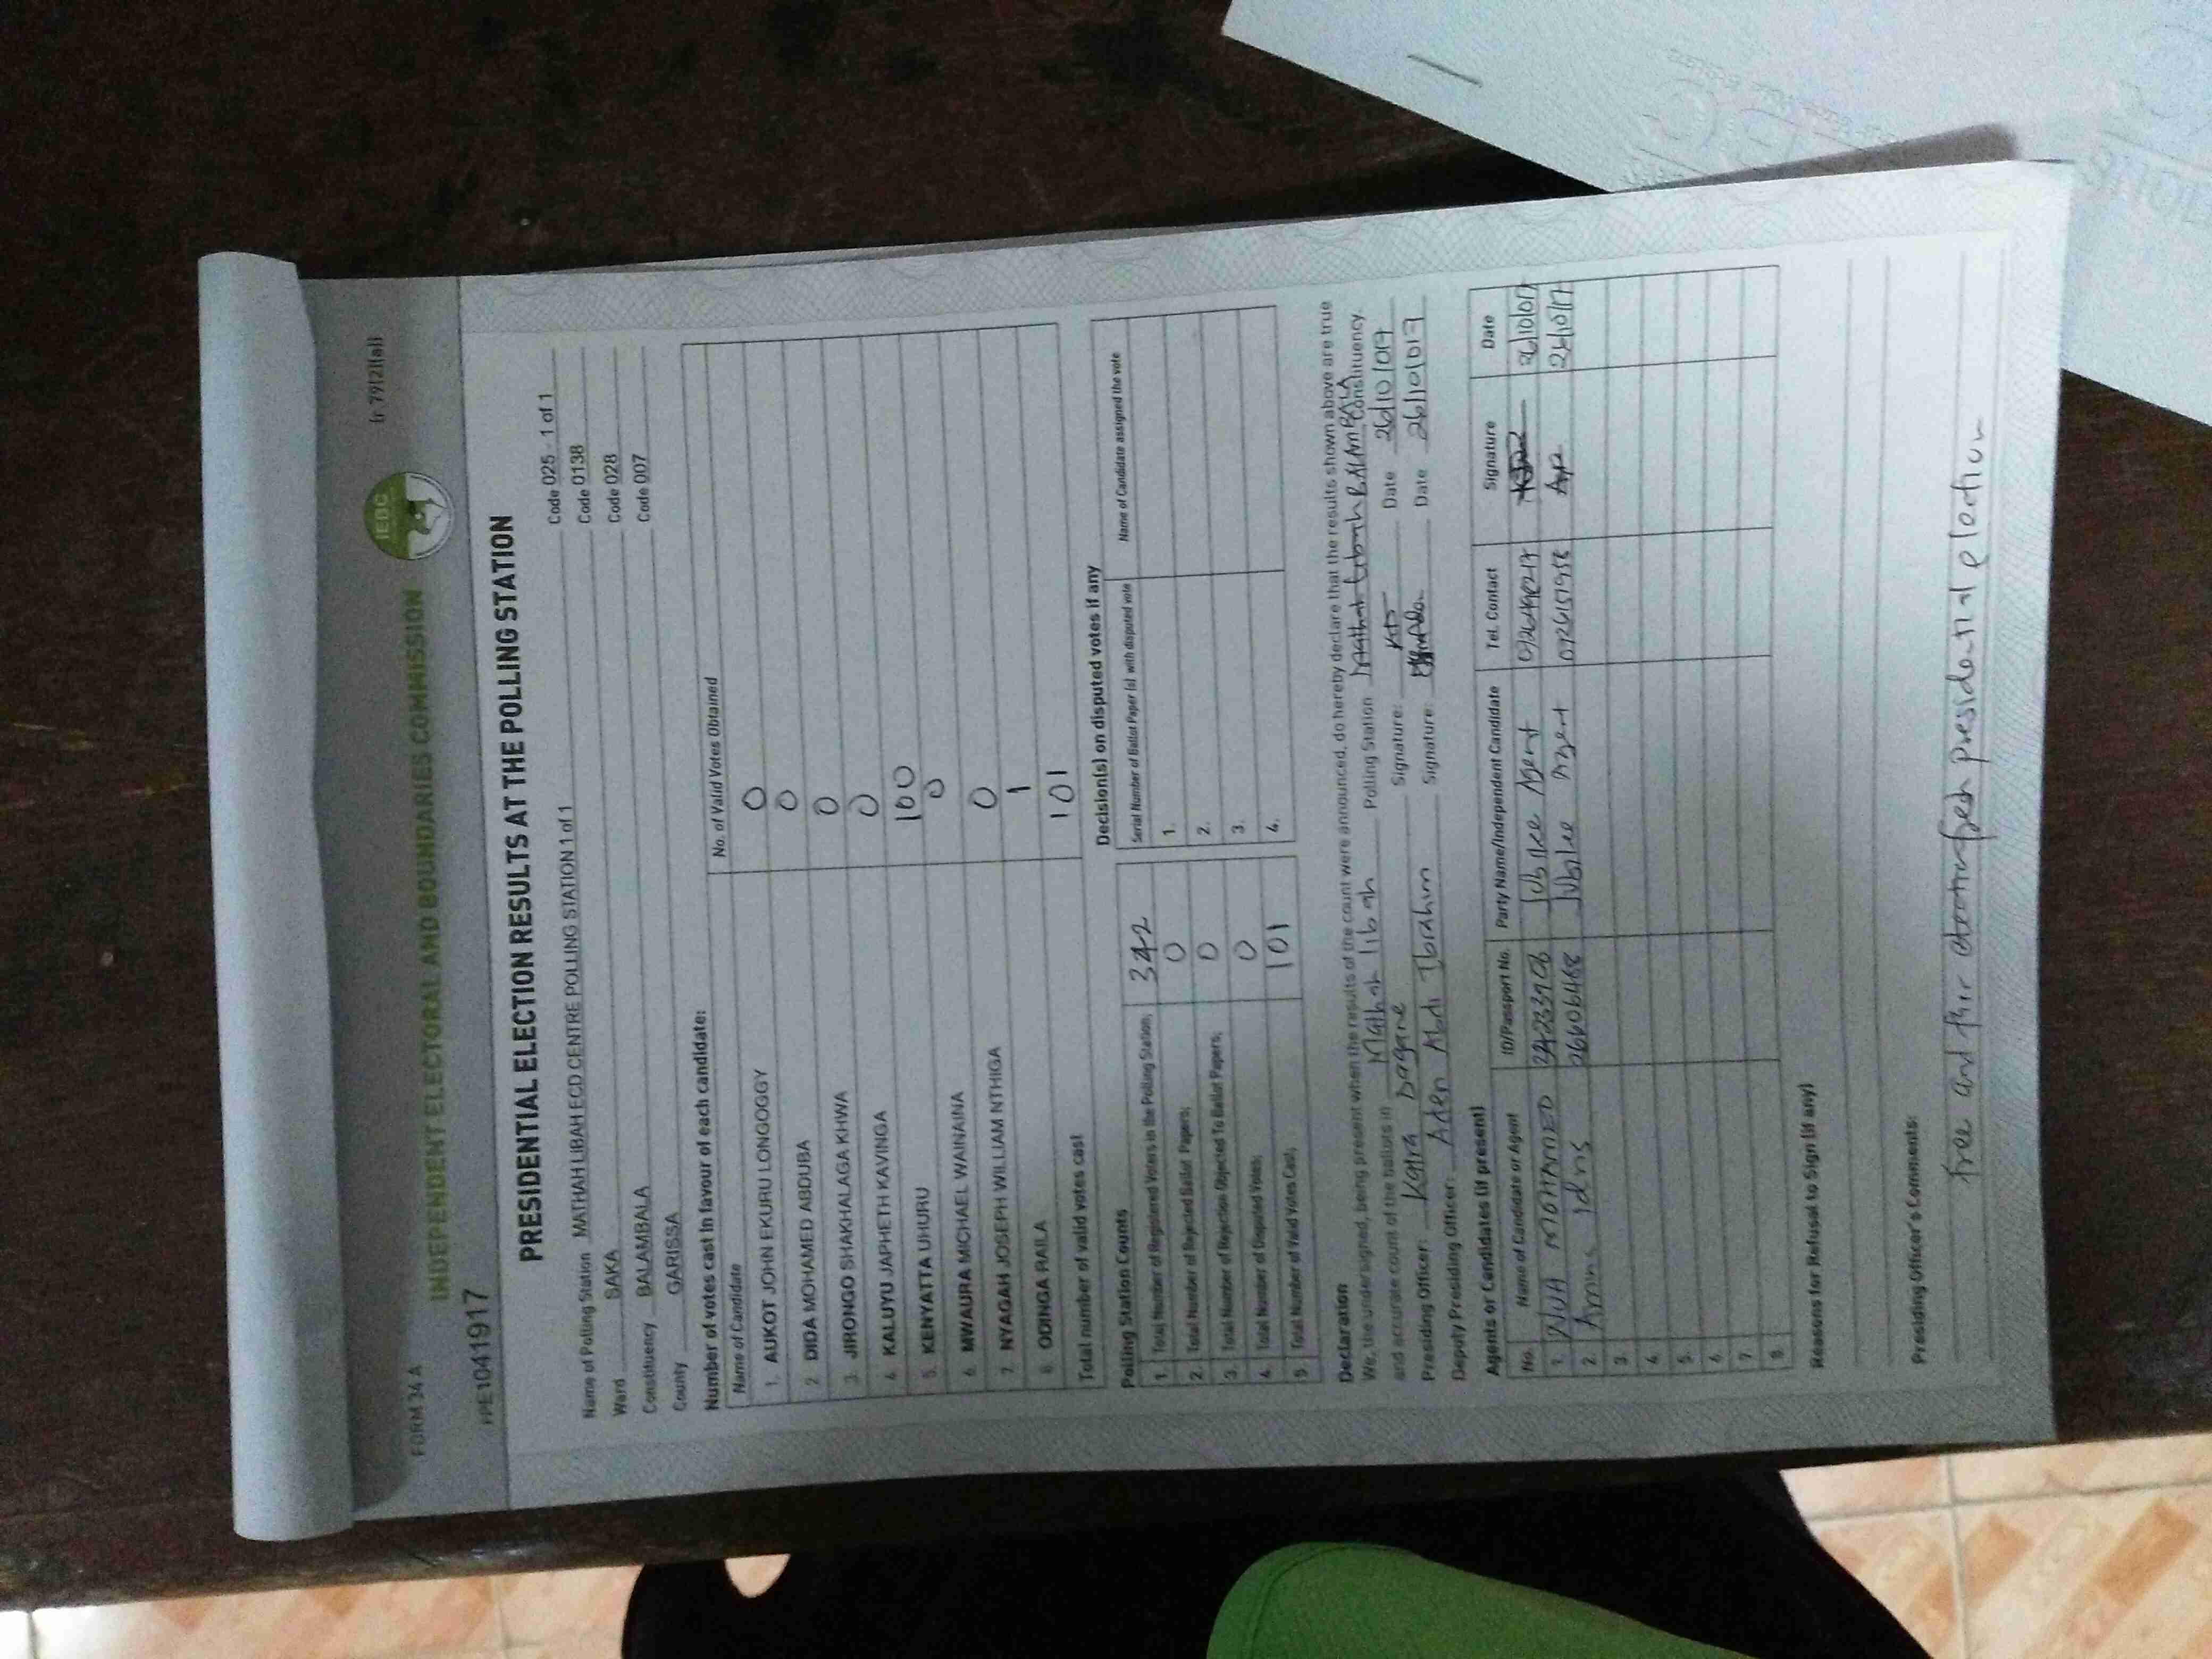 FORM 34 A
INDEPENDENT ELECTORAL AND BOUNDARIES COMMISSION
IEBC
(r 79(2)(a))
PPE1041917
PRESIDENTIAL ELECTION RESULTS AT THE POLLING STATION
Name of Polling Station MATHAH LIBAH ECD CENTRE POLLING STATION 1 of 1 Code 025 - 1 of 1
Ward SAKA Code 0138
Constituency BALAMBALA Code 028
County GARISSA Code 007
Number of votes cast in favour of each candidate:
Name of Candidate No. of Valid Votes Obtained
1. AUKOT JOHN EKURU LONGOGGY 0
2 DIDA MOHAMED ABDUBA 0
3. JIRONGO SHAKHALAGA KHWA 0
4 KALUYU JAPHETH KAVINGA 0
5. KENYATTA UHURU 100
6 MWAURA MICHAEL WAINAINA 0
7 NYAGAH JOSEPH WILLIAM NTHIGA 0
8 ODINGA RAILA 1
Total number of valid votes cast 101
Polling Station Counts
1. Total Number of Registered Voters in the Polling Station; 342
2. Total Number of Rejected Ballot Papers; 0
3. Total Number of Rejection Objected To Ballot Papers; 0
4 Total Number of Disputed Votes; 0
5 Total Number of Valid Votes Cast; 101
Decision(s) on disputed votes if any
Serial Number of Ballot Paper (s) with disputed vote Name of Candidate assigned the vote
1.
2.
3.
4.
Declaration
We, the undersigned, being present when the results of the count were announced, do hereby declare that the results shown above are true
and accurate count of the ballots in Mathah libah Polling Station BALAMBALA Constituency.
Presiding Officer: Katra Dagane Signature: Date 26/10/017
Deputy Presiding Officer: Aden Abdi Ibrahim Signature: Date 26/10/017
Agents or Candidates (if present)
No. Name of Candidate or Agent ID/Passport No. Party Name/Independent Candidate Tel. Contact Signature Date
1. NUH MOHAMED Jubilee Agent 26/10/017
2. Amina Idris 26606468 Jubilee Agent 26/10/17
3.
4
5.
6.
7.
8
Reasons for Refusal to Sign (if any)
Presiding Officer's Comments:
free and fair fresh presidential election